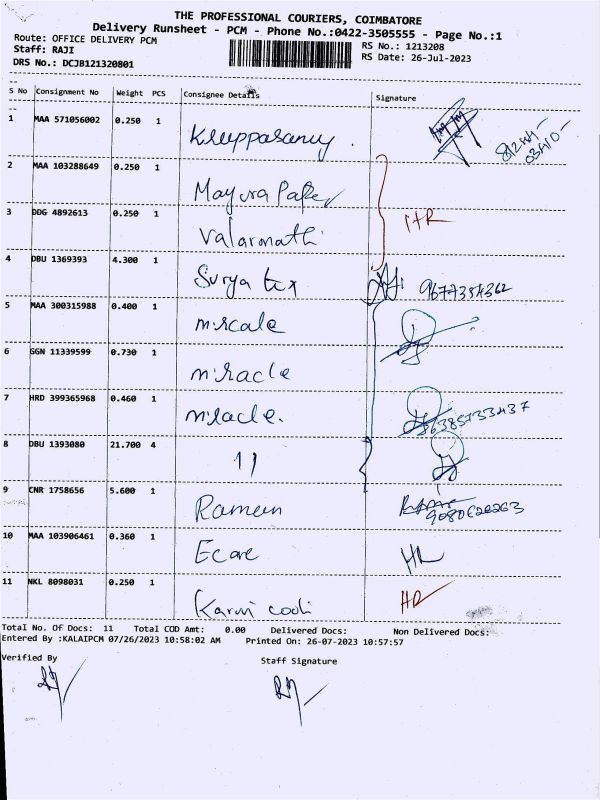 THE PROFESSIONAL COURIERS, COIMBATORE
Delivery Runsheet - PCM - Phone No.:0422-3505555 - Page No.:1
Route: OFFICE DELIVERY PCM
RS No.: 1213208
Staff: RAJI
RS Date: 26-Jul-2023
DRS No.: DCJB121320801
S No Consignment No Weight PCS Consignee Details Signature
1 MAA 571056002 0.250 1
2 MAA 103288649 0.250 1 Mayura
3 DDG 4892613 0.250 1 Valarmathi
HR
4 DBU 1369393 4.300 1 Surya tex
5 MAA 300315988 0.400 1 mircale
6 GGN 11339599 0.730 1 miracle
7 HRD 399365968 0.460 1 miracle.
8 DBU 1393080 21.700 4 11
9 CNR 1758656 5.600 1
10 MAA 103906461 0.360 1 Ecare HR
11 NKL 8098031 0.250 1 HR
Total No. Of Docs: 11 Total COD Amt: 0.00 Delivered Docs: Non Delivered Docs:
Entered By :KALAIPCM 07/26/2023 10:58:02 AM Printed On: 26-07-2023 10:57:57
Verified By Staff Signature